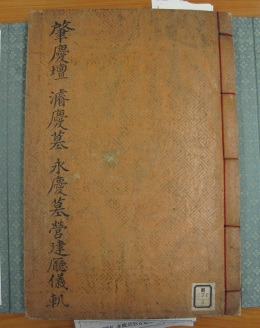 肇慶壇 濬慶墓 永慶墓 營建廳儀軌